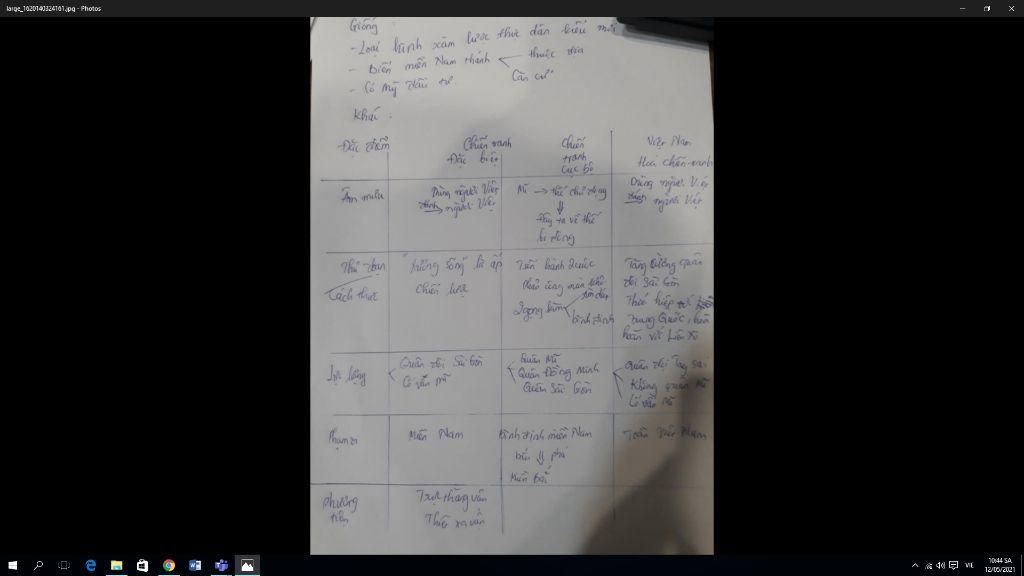 large_1620140324161.jpg - Photos
Giống
- Loại hình xâm lược thực dân kiểu mới
- Biến miền Nam thành
thuộc địa
Căn cứ
- Có Mỹ đầu tư.
Khác :
Đặc điểm
Chiến tranh
Đặc biệt
Chiến
tranh
Cục bộ
Việt Nam
Hoá chiến tranh
Âm mưu
Dùng người Việt
đánh người Việt
Mĩ → thế chủ động
⇓
Đẩy ta về thế
bị động
Dùng người Việt
đánh người Việt
Thủ đoạn
Cách thức
"xương sống" là ấp
chiến lược
Tiến hành 2 cuộc
Phản công mùa khô
2 gọng kìm
tìm diệt
bình định
Tăng cường quân
đội Sài Gòn
Thoả hiệp với
Trung Quốc, hoà
hoãn với Liên Xô
Lực lượng
Quân đội Sài Gòn
Cố vấn Mĩ
Quân Mĩ
Quân Đồng Minh
Quân Sài Gòn
Quân đội Tay sai
Không quân Mĩ
Cố vấn Mĩ
Phạm vi
Miền Nam
Bình định miền Nam
bắn ⇓ phá
Miền Bắc
Toàn Việt Nam
phương
tiện
Trực thăng vận
Thiết xa vận
VIE
10:44 SA
12/05/2021